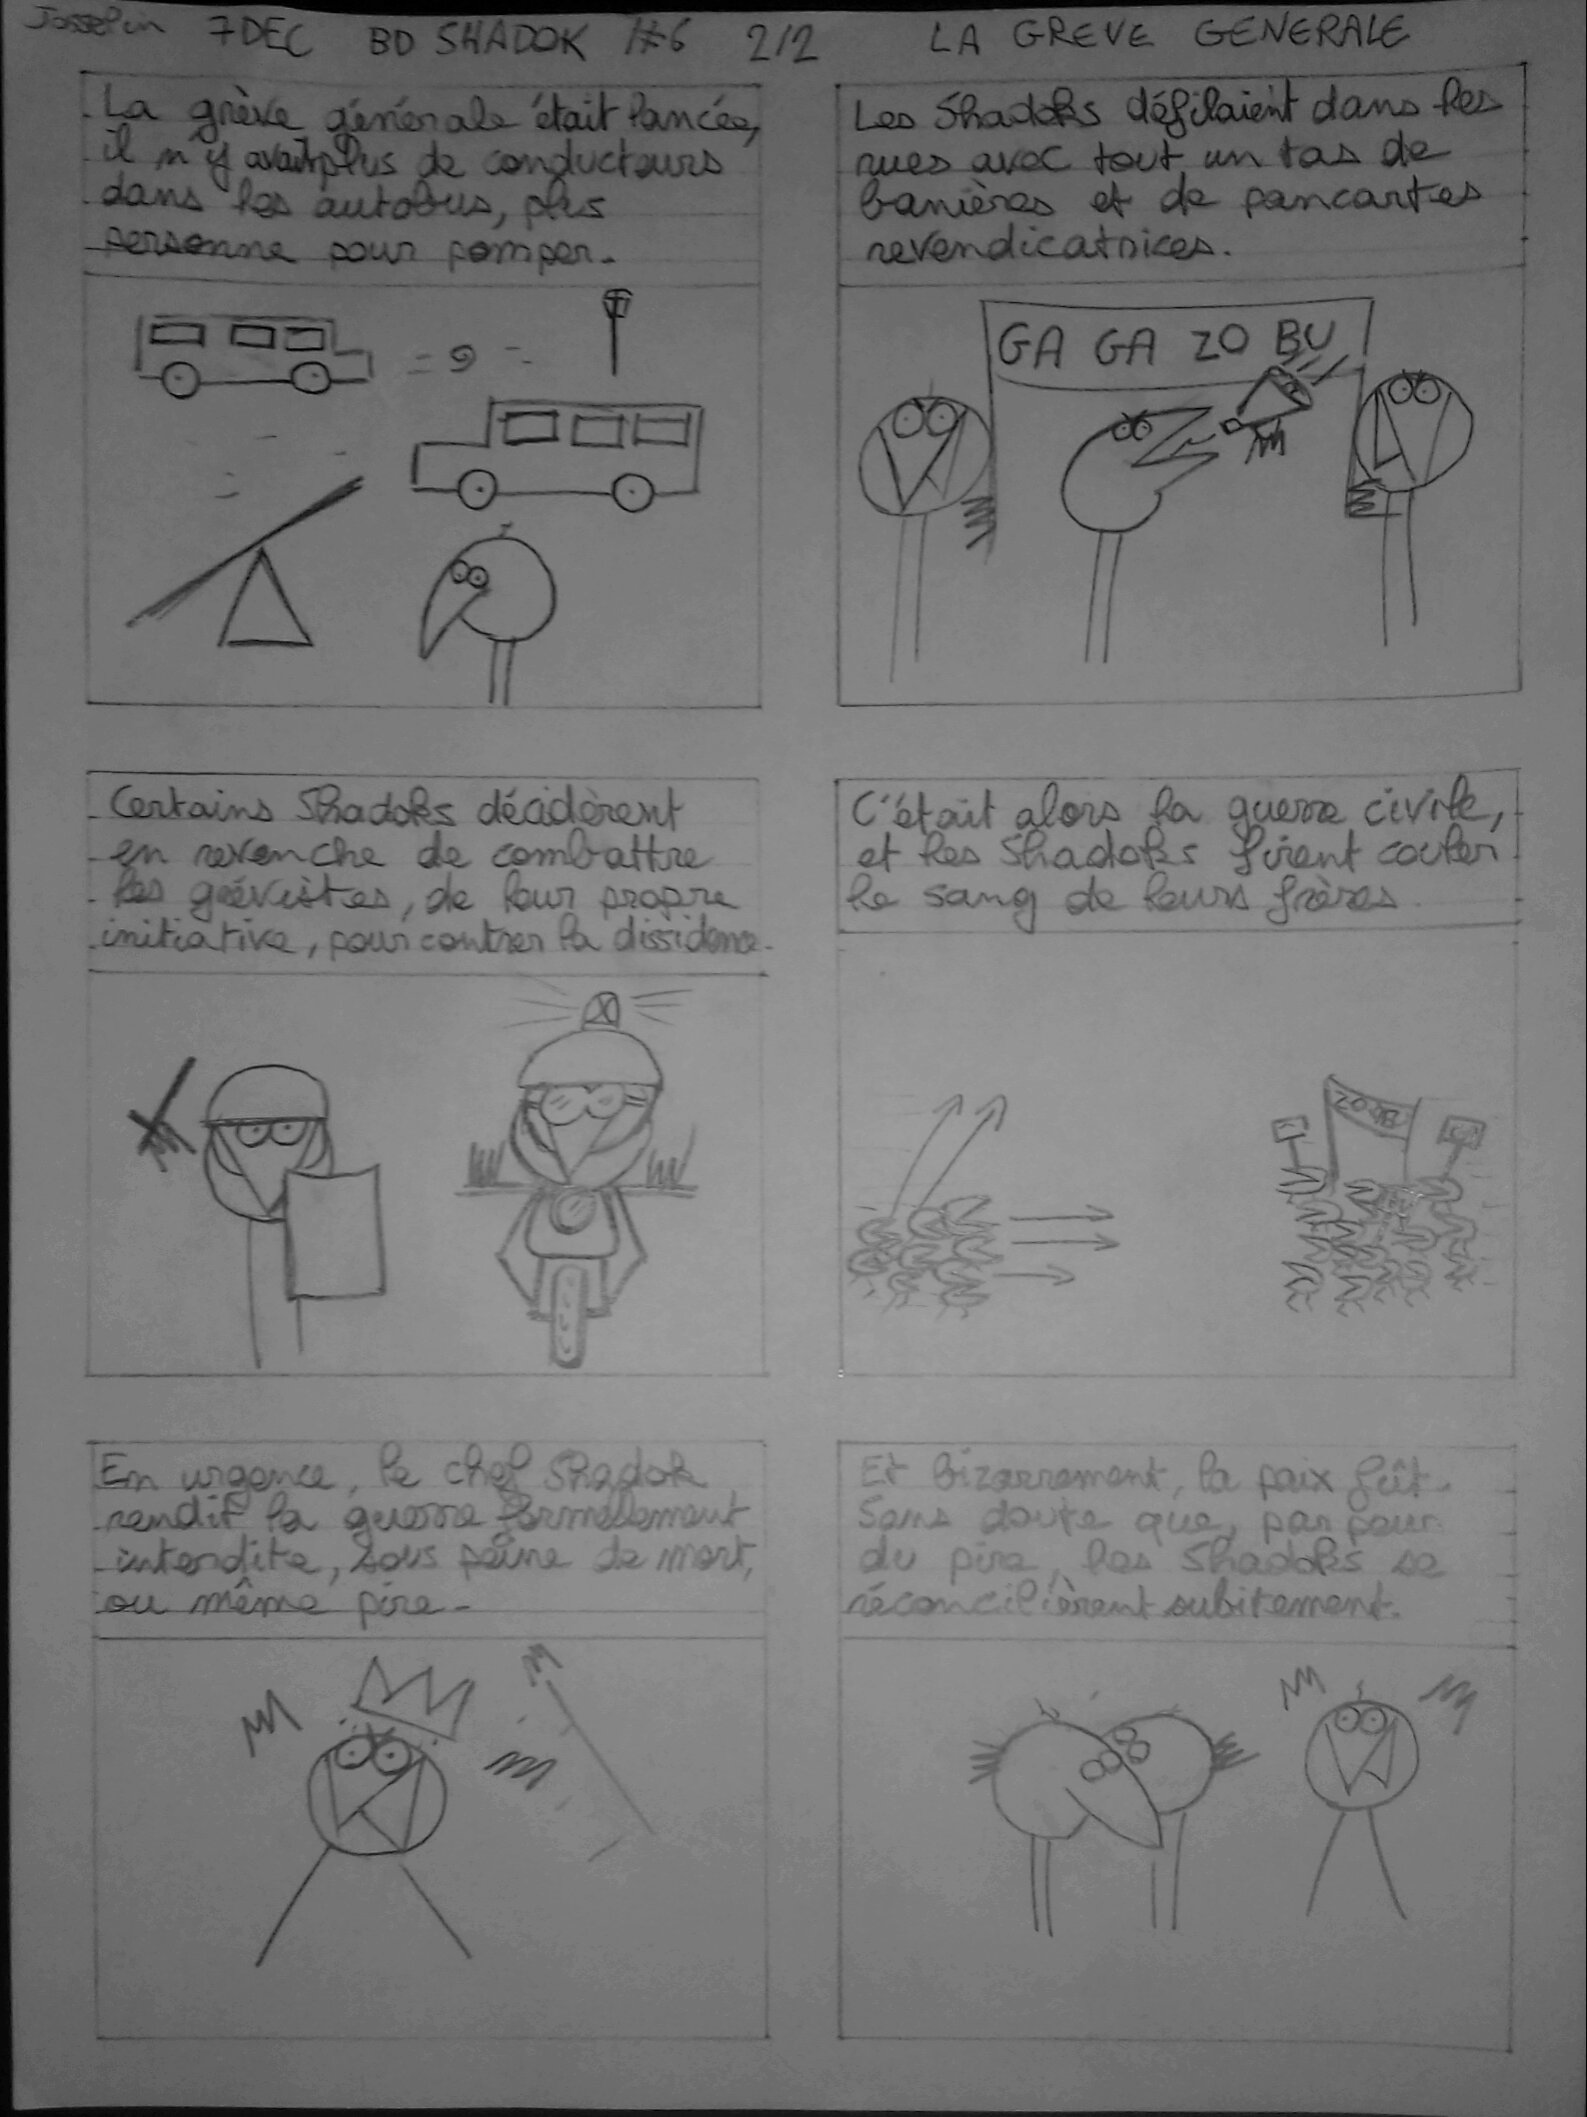 Josselin 7 DEC BD SHADOK 1#6 2/2 LA GREVE GENERALE
La grève générale était lancée,
il n'y avait plus de conducteurs
dans les autobus, plus
personne pour pomper.
Les Shadoks défilaient dans les
rues avec tout un tas de
banières et de pancartes
revendicatrices.
GA GA ZO BU
Certains Shadoks décidèrent
en revanche de combattre
les grévistes, de leur propre
initiative, pour contrer la dissidence.
C'était alors la guerre civile,
et les Shadoks firent couler
le sang de leurs frères.
En urgence, le chef Shadok
rendit la guerre formellement
interdite, sous peine de mort,
ou même pire.
Et bizarrement, la paix fût.
Sans doute que, par peur
du pire, les Shadoks se
réconcilièrent subitement.